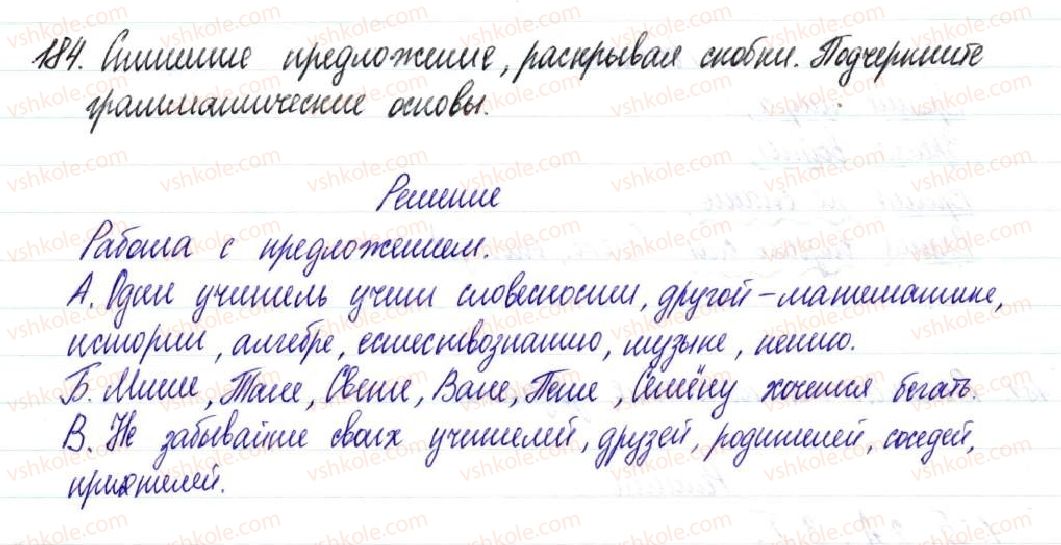 184. Спишите предложение, раскрывая скобки. Подчеркните
грамматические основы.
Решение
Работа с предложением.
А. Один учитель учит словесности, другой – математике,
истории, алгебре, естествознанию, музыке, пению.
Б. Мише, Тане, Свете, Вале, Пете, Семёну хочется бегать.
В. Не забывайте своих учителей, друзей, родителей, соседей,
приятелей.